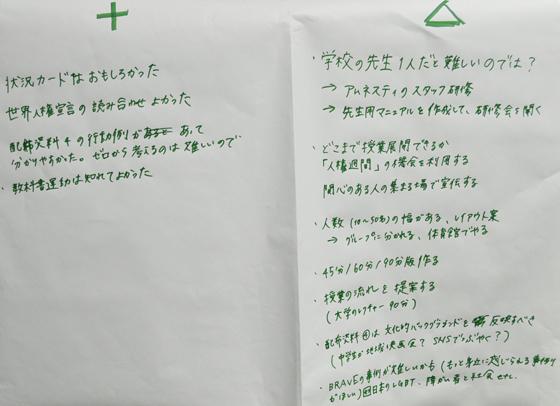 +
状況カードはおもしろかった
世界人権宣言の読み合わせよかった
配布資料4の行動例があって
分かりやすかった。ゼロから考えるのは難しいので
・教科書運動は知れてよかった
△
・学校の先生1人だと難しいのでは?
→ アムネスティのスタッフ研修
→ 先生用マニュアルを作成して、研修会を開く
・どこまで授業展開できるか
「人権週間」の機会を利用する
関心のある人の集まる場で宣伝する
・人数(10〜50名)の幅がある、レイアウト案
→ グループに分かれる、体育館でやる
・45分/60分/90分版作る
・授業の流れを提案する
(大学のレクチャー 90分)
・配布資料④は文化的バックグラウンドを反映すべき
(中学生が地域映画会? SNSでつぶやく?)
・BRAVEの事例が難しいかも(もっと身近に感じられる事例
がほしい)日本のLGBT、障がい者と社会 etc.